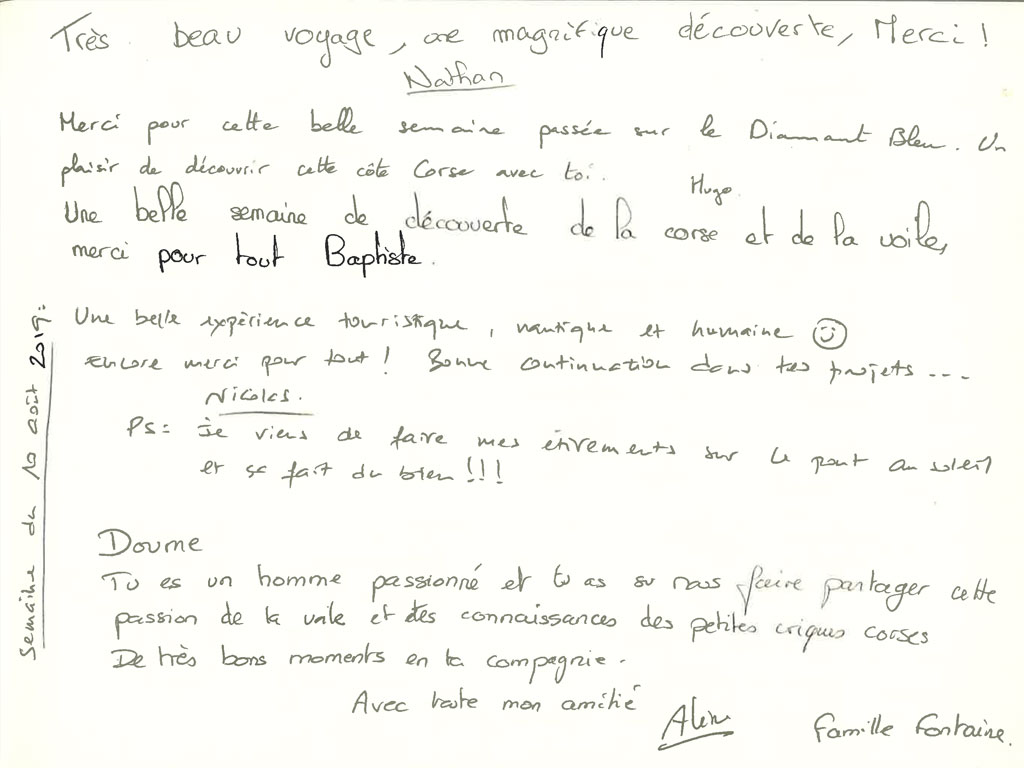 Très beau voyage, une magnifique découverte, Merci !
Nathan
Merci pour cette belle semaine passée sur le Diamant Bleu. Un
plaisir de découvrir cette côte Corse avec toi.
Hugo.
Une belle semaine de découverte de la corse et de la voile,
merci pour tout Baptiste.
Une belle expèrience touristique, nautique et humaine ☺
Encore merci pour tout ! Bonne continuation dans tes projets ....
Nicolas.
PS = Je viens de faire mes étirements sur le pont au soleil
et ça fait du bien !!!
Semaine du 10 août 2019:
Doume
Tu es un homme passionné et tu as su nous faire partager cette
passion de la voile et tes connaissances des petites criques corses
De très bons moments en ta compagnie.
Avec toute mon amitié
Alain
Famille Fontaine.